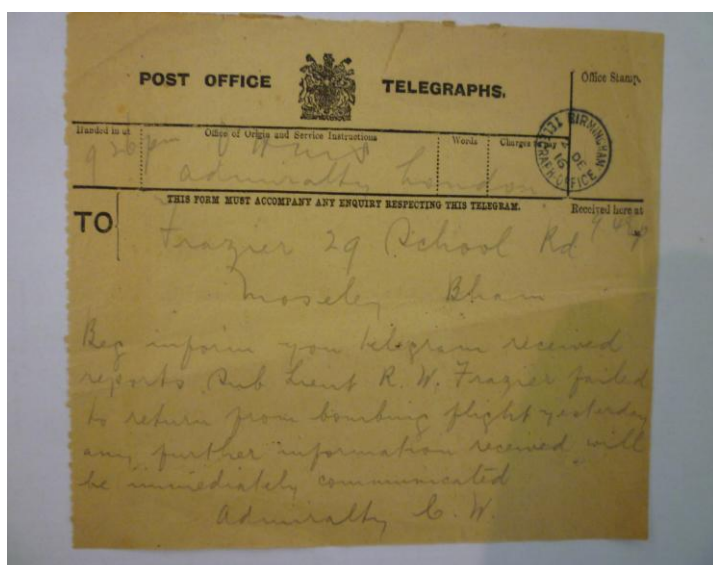 POST OFFICE TELEGRAPHS.
Office Stamp.
Handed in at
Office of Origin and Service Instructions
Words
Charges to pay
9 26 pm
Admiralty London
BIRMINGHAM
16 DE
TELEGRAPH-OFFICE
THIS FORM MUST ACCOMPANY ANY ENQUIRY RESPECTING THIS TELEGRAM.
Received here at
TO
Frazier 29 School Rd
Moseley Bham
Beg inform you telegram received
reports Sub Lieut R. W. Frazier failed
to return from bombing flight yesterday
any further information received will
be immediately communicated
Admiralty C. W.